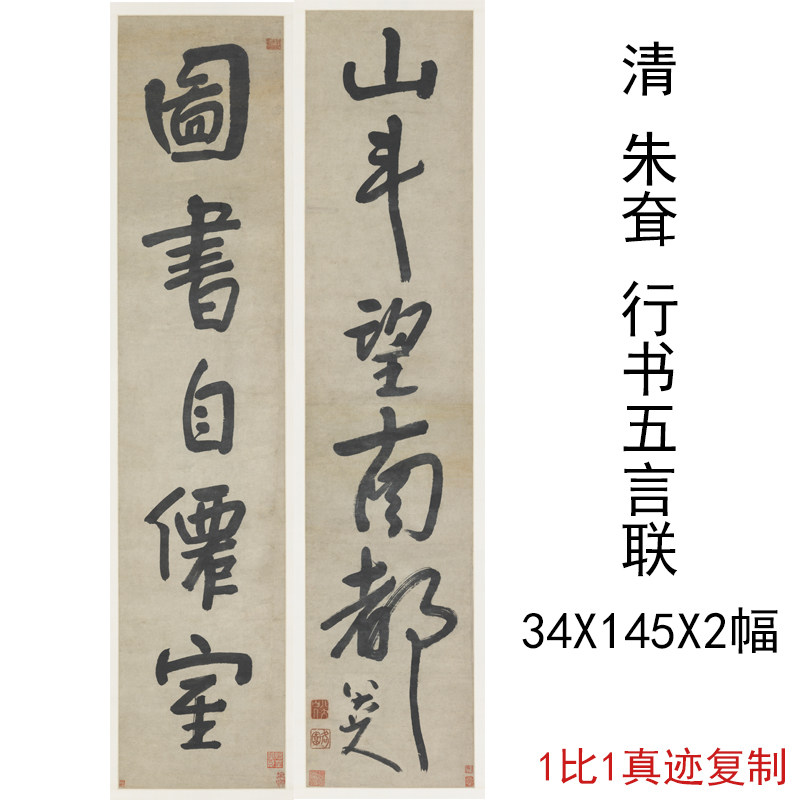 圖書自僊室
山斗望南都
八大山人
清 朱耷 行书五言联
34X145X2幅
1比1真迹复制